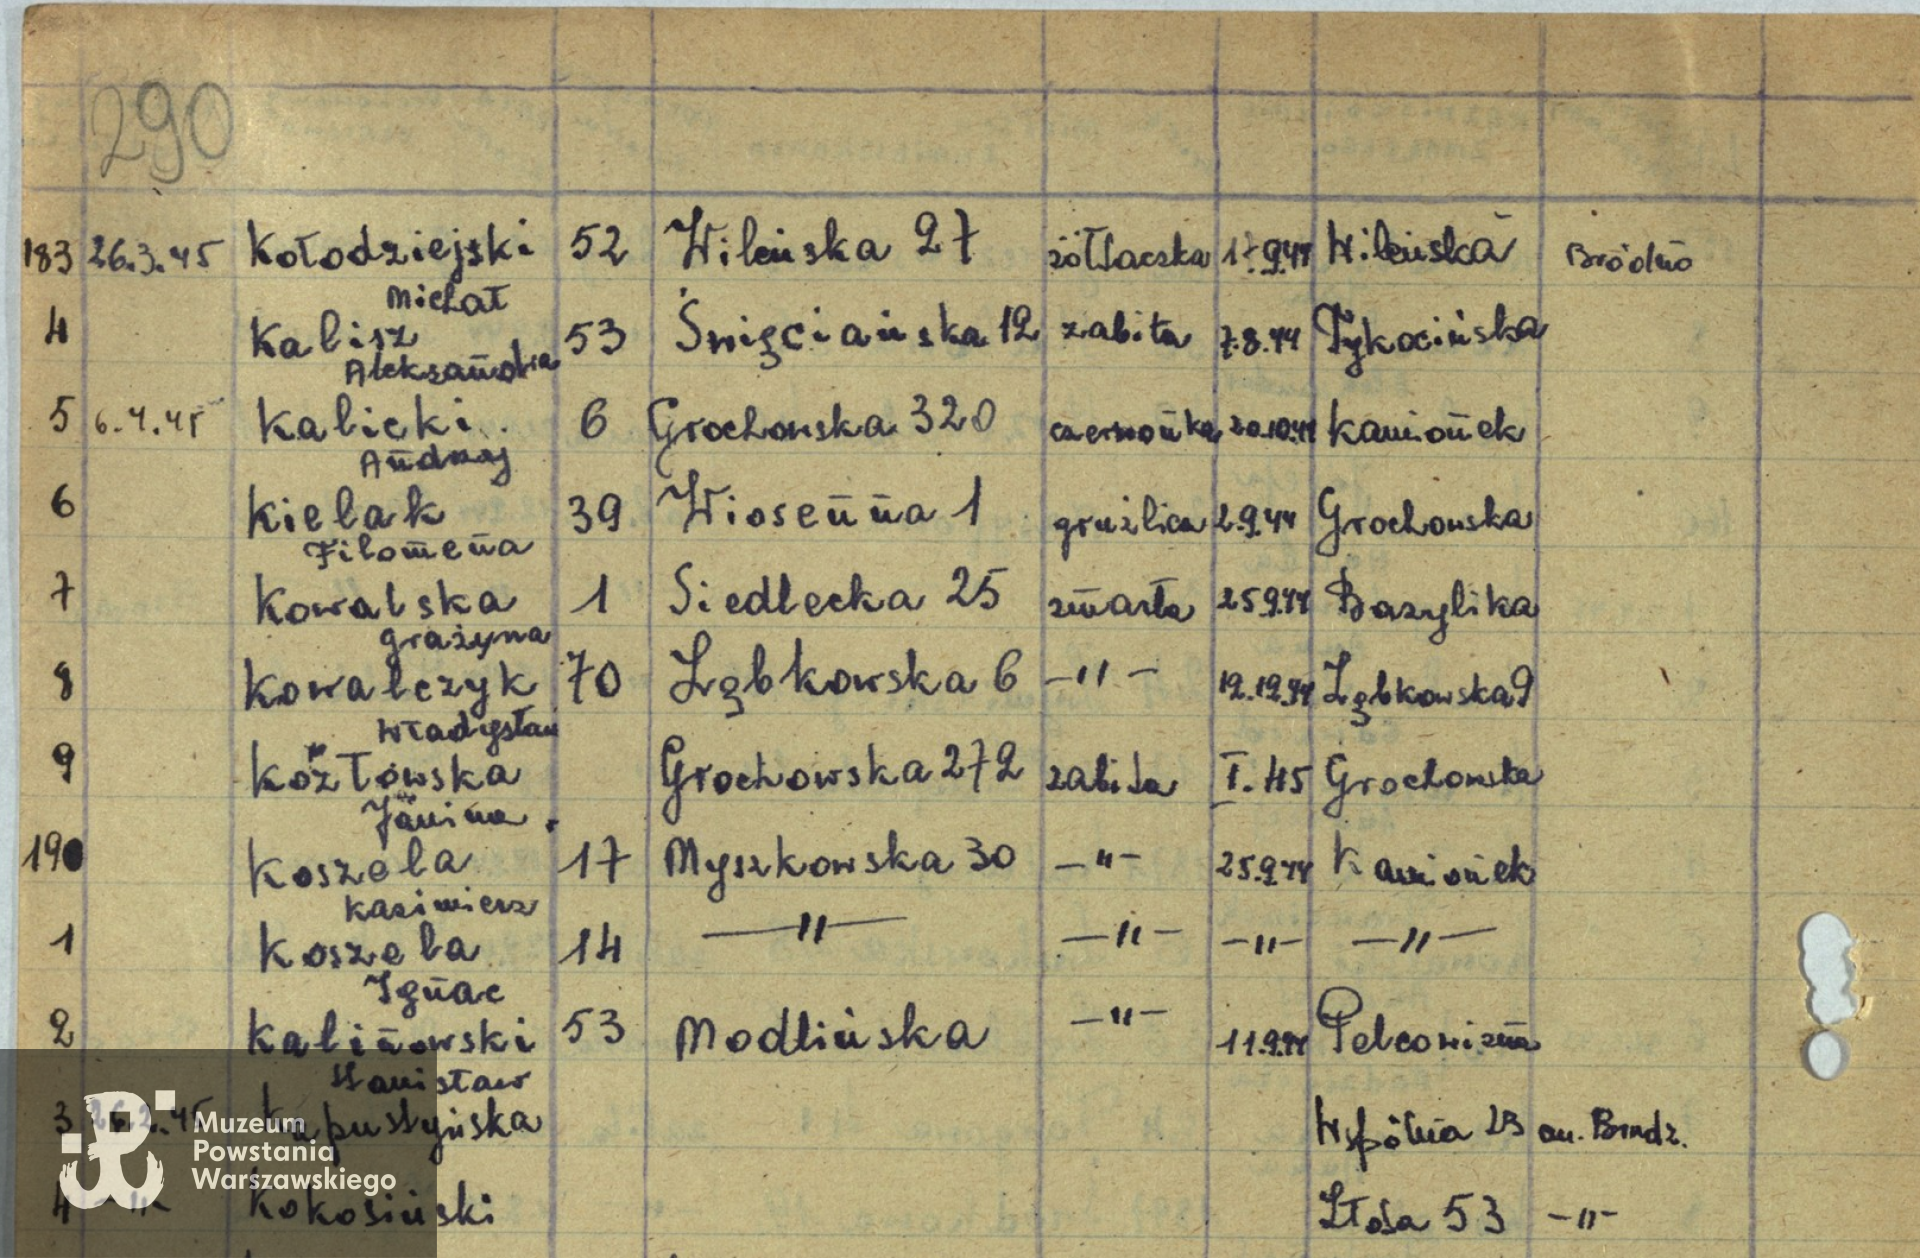 290
183 26.3.45 Kołodziejski 52 Wileńska 27 żółtaczka 17.9.44 Wileńska Bródno
Michał
4 Kalisz 53 Święciańska 12 zabita 7.8.44 Tykocińska
Aleksandra
5 6.4.45 Kalicki 6 Grochowska 320 czerwonka 20.10.44 Kamionek
Andrzej
6 Kielak 39 Wiosenna 1 gruźlica 2.9.44 Grochowska
Filomena
7 Kowalska 1 Siedlecka 25 zmarła 25.9.44 Bazylika
Grażyna
8 Kowalczyk 70 Ząbkowska 6 -"- 12.12.44 Ząbkowska 9
Władysław
9 Kozłowska Grochowska 272 zabita I.45 Grochowska
Janina
190 Koszela 17 Myszkowska 30 -"- 25.9.44 Kamionek
Kazimierz
1 Koszela 14 -"- -"- -"- -"-
Ignac
2 Kalinowski 53 Modlińska -"- 11.9.44 Pelcowizna
Stanisław
3 26.2.45 Kapustyńska Wspólna 23 cm. Brudz.
4 -"- Kokosiński Złota 53 -"-
Muzeum
Powstania
Warszawskiego